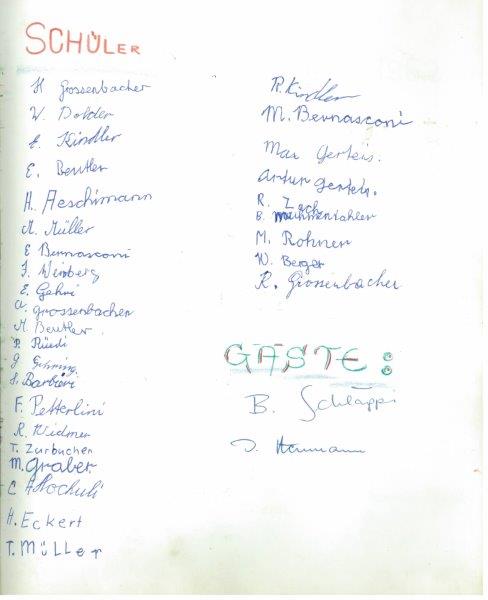 SCHÜLER
H Grossenbacher
W. Dolder
E. Kindler
E. Beutler
H. Aeschimann
M. Müller
E Bernasconi
J. Weinberg
E. Gehri
A. Grossenbacher
M. Beutler.
P. Rüedi
G. Gehring
S. Barbieri
F. Petterlini
R. Widmer
T. Zurbuchen
M. Graber
C A Hochuli
H. Eckert
T. Müller
R. Kindler
M. Bernasconi
Max Gerteis.
Artur Gerteis.
R. Zech
B.
M. Rohner
W. Berger
R. Grossenbacher
GÄSTE:
B. Schläppi